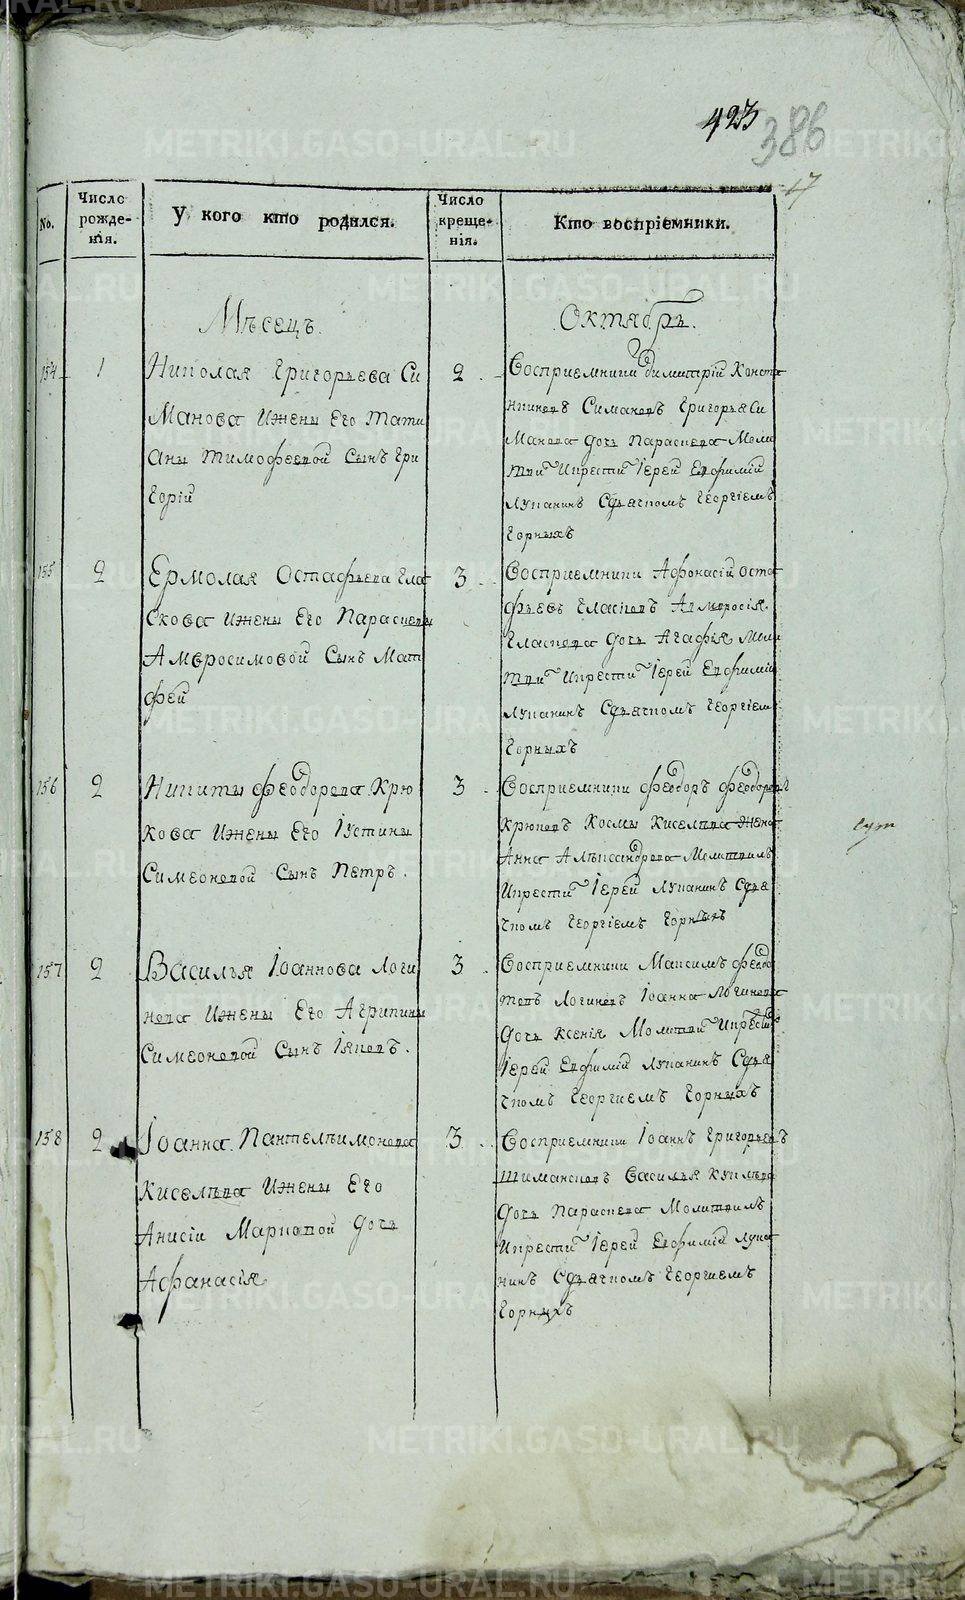 423
386
17
No.
Число рожденія.
У кого кто родился.
Число крещенія.
Кто воспріемники.
Мѣсецъ
Октябрь.
154
1
Николая Григорьева Си
манова Ижены Его Тати
аны Тимофеевой Сынъ Гри
Горій
2
Восприемники Димитрій Конста
нтиновъ Симановъ Григорья Си
манова дочь Параскева Моли
тви Икрести Іерей Евфимій
Лупанинъ Сдьячкомъ Георгіемъ
Горныхъ
155
2
Ермолая Остафьева Гла
скова Ижены Его Параскевы
Амвросимовой Сынъ Мат
фей
3
Восприемники Афонасій Оста
фьевъ Гласковъ Амвросія
Гласкова дочь Агафія Моли
тви Икрести Іерей Евфимій
Лупанинъ Сдьячкомъ Георгіем
Горныхъ
156
2
Никиты Феодорова Крю
кова Ижены Его Іустины
Симеоновой Сынъ Петръ.
3
Восприемники Феодоръ Феодоровъ
Крюковъ Космы Киселева жена
Анна Алѣксандрова Молитвилъ
Икрести Іерей Лупанинъ Сдья
чкомъ Георгіемъ Горныхъ
157
2
Василья Іоаннова Логи
нова Ижены Его Агрипины
Симеоновой Сынъ Іяковъ.
3
Восприемники Максимъ Феодо
товъ Логиновъ Іоанна Логинова
дочь Ксенія Молитви Икрести
Іерей Евфимій Лупанинъ Сдья
чкомъ Георгиемъ Горныхъ
158
2
Іоанна Пантелѣимонова
Киселѣва Ижены Его
Анисіи Марковой дочь
Афанасія
3
Восприемники Іоаннъ Григорьевъ
Василья
дочь Параскева Молитвилъ
Икрести Іерей Евфимій Лупа
нинъ Сдьячкомъ Георгиемъ
Горныхъ
METRIKI.GASO-URAL.RU